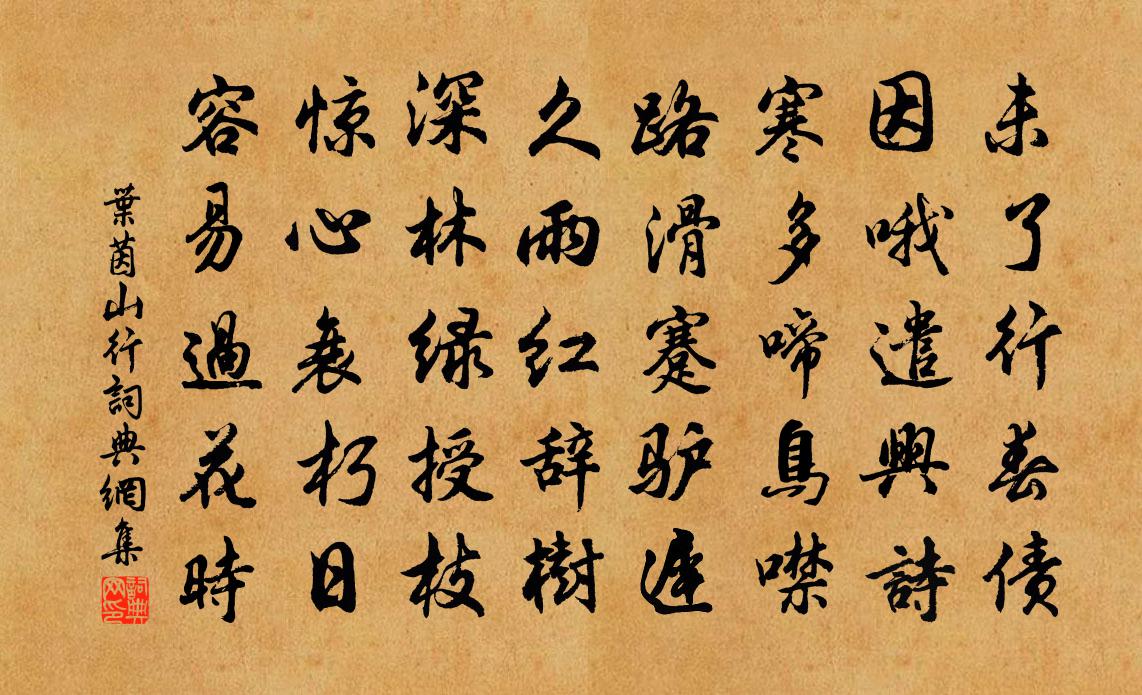 未了行春债
因哦遣興詩
寒多啼鳥噤
路滑蹇驴遲
久雨红辞樹
深林绿授枝
惊心衰朽日
容易過花時
葉茵山行詞典網集
詞典网印